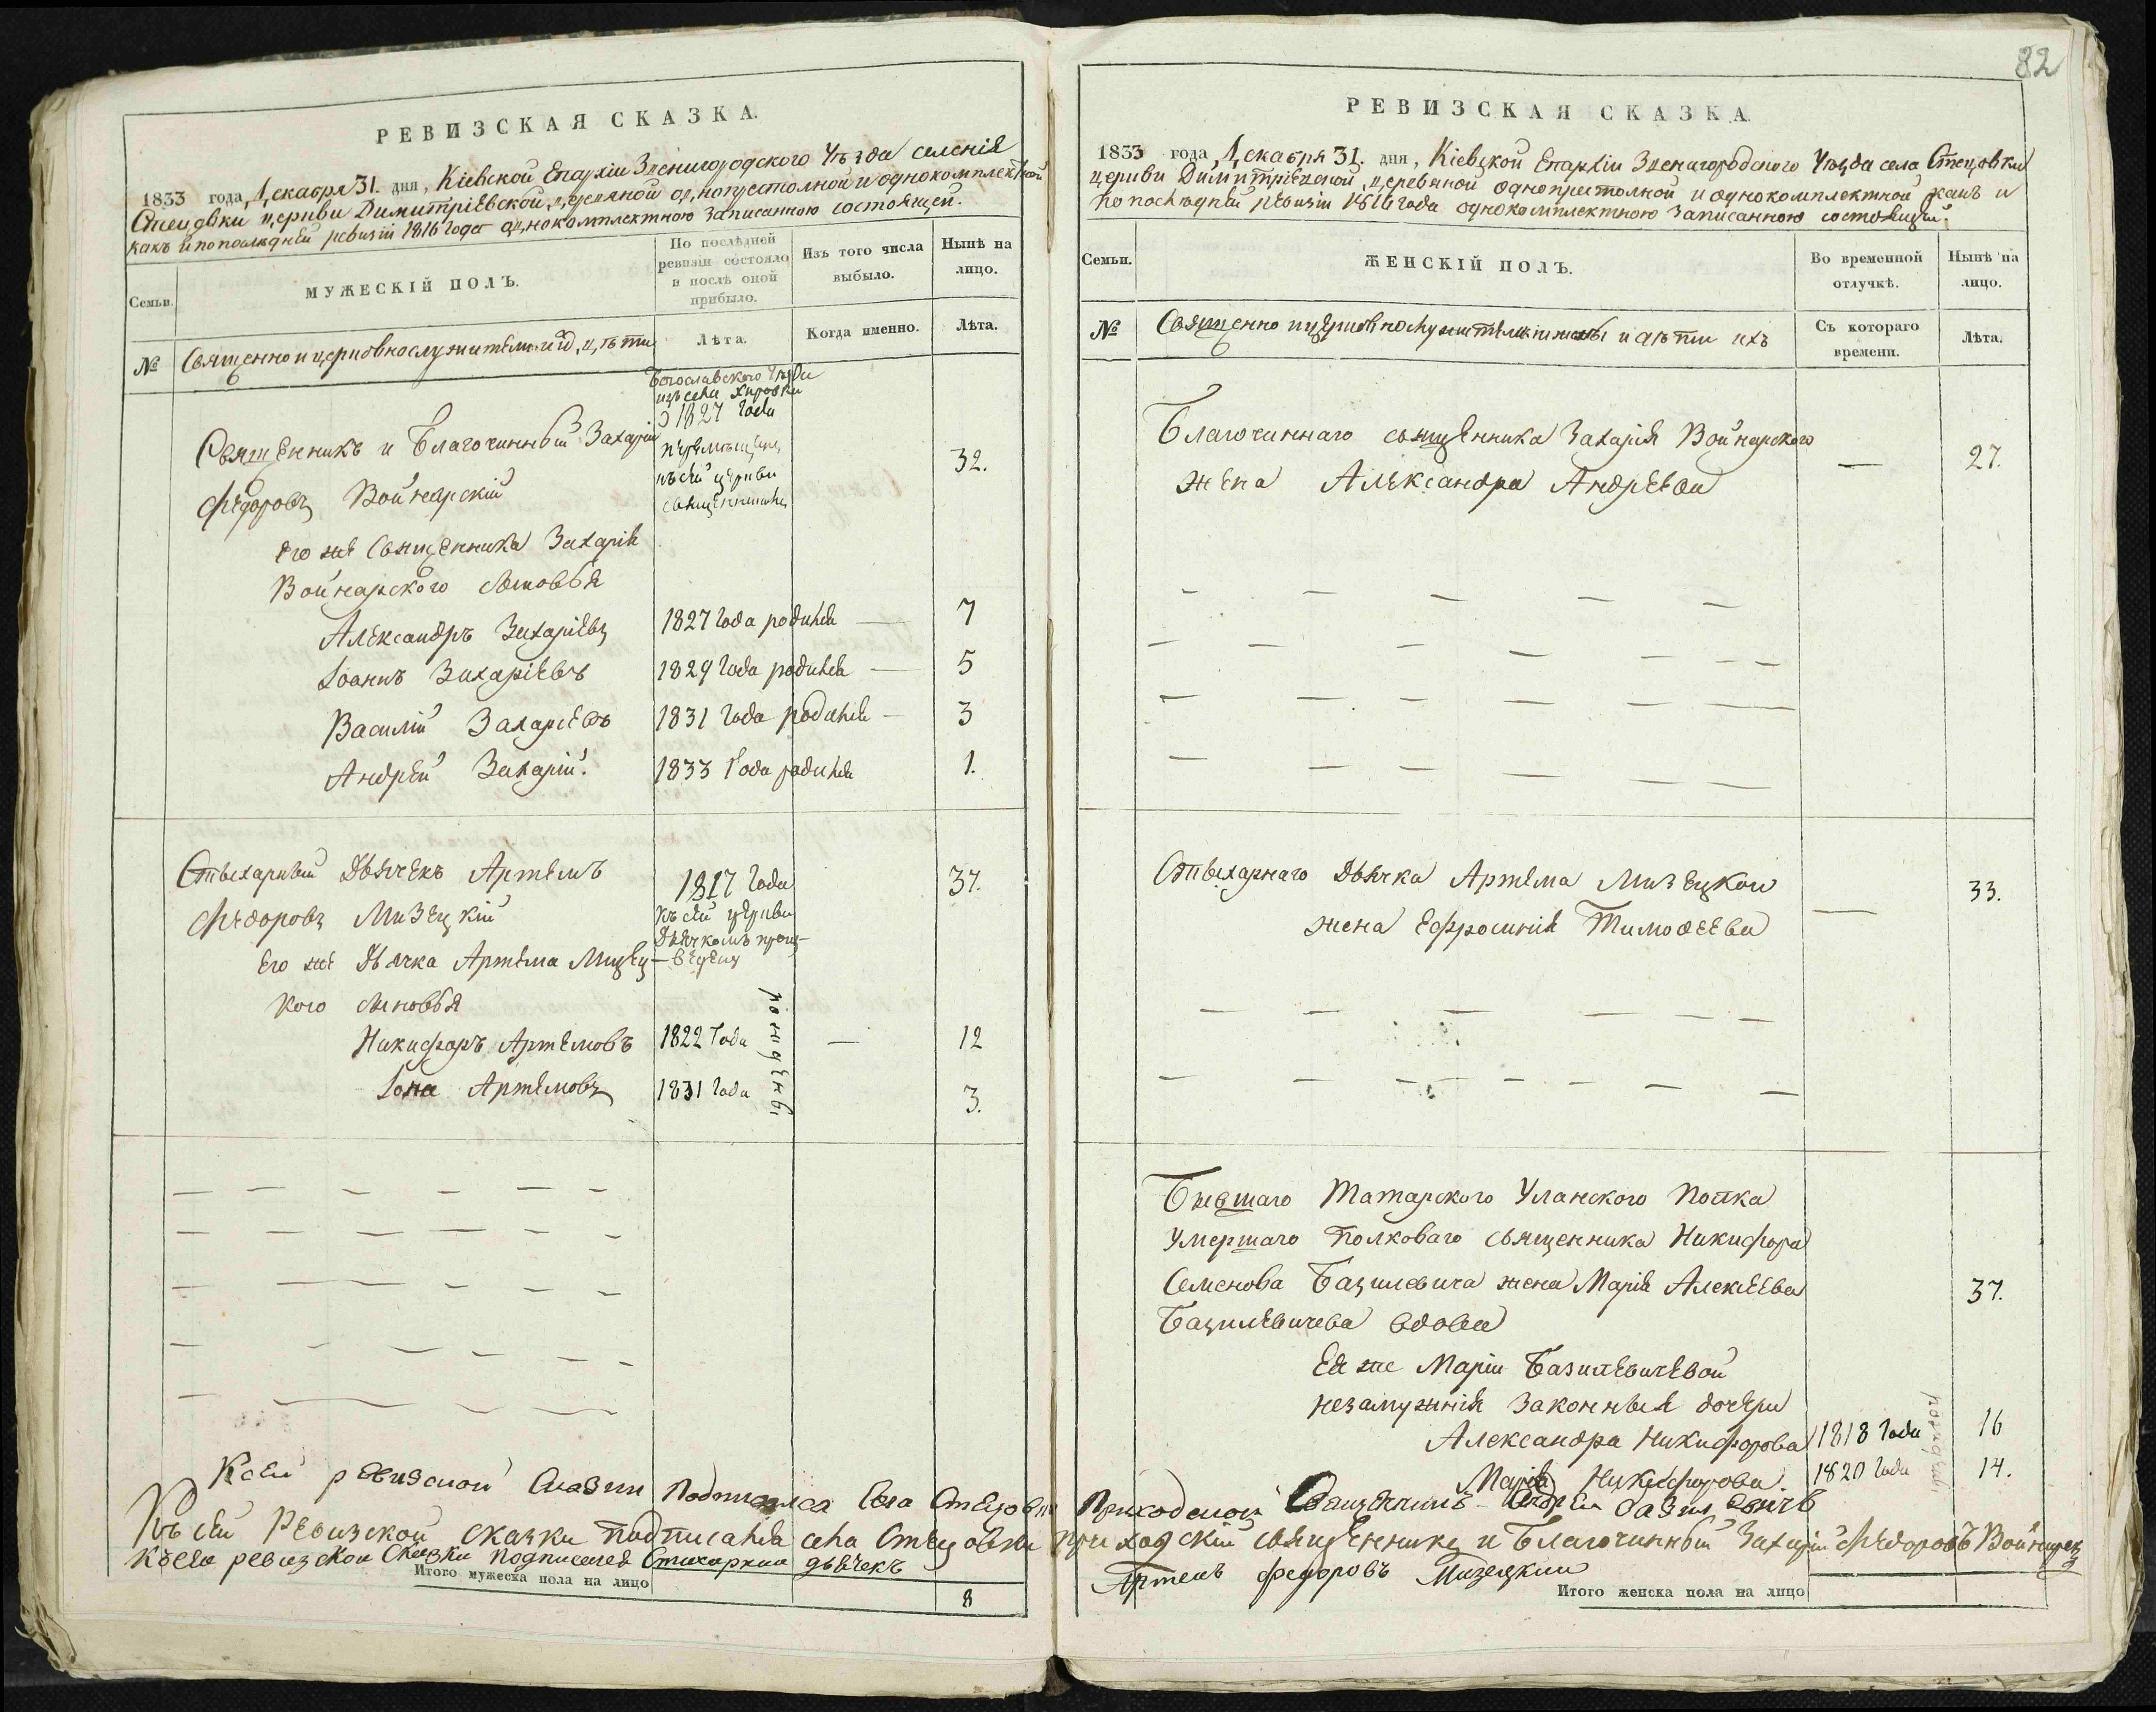 РЕВИЗСКАЯ СКАЗКА.
1833 года, Декабря 31. дня, Кіевской Епархіи Звенигородского Уѣзда селенія
Стецовки церкви Димитріевской, деревяной однопрестолной и однокомплектной
какъ и по последней ревизіи 1816 года однокомплектною записанною состоящей.
Семьи.
МУЖЕСКІЙ ПОЛЪ.
По послѣдней ревизіи состояло и послѣ оной прибыло.
Изъ того числа выбыло.
Нынѣ на лицо.
№
Священно и церковнослужители и ихъ дѣти
Лѣта.
Когда именно.
Лѣта.
Богославского Уѣзда
изъ села Хировки
с 1827 года
перемѣщенъ
къ сей церкви
священникомъ
Священникъ и Благочинный Захарій
Федоровъ Войнарскій
32.
его же Священника Захарія
Войнарского сыновья
Александръ Захаріевъ 1827 года родился — 7
Іоаннъ Захаріевъ 1829 года родился — 5
Василій Захаріевъ 1831 года родился — 3
Андрей Захарій. 1833 года родился 1.
Стыхарный Дьячекъ Артемъ
Федоровъ Мизецкій
1817 года
къ сей церкви
Дьячкомъ произ-
-веденъ
37.
Его же Дьячка Артема Мизец-
кого сыновья
Никифоръ Артемовъ 1822 года — 12
Іона Артемовъ 1831 года 3.
рожденъ
Ксей ревизской Сказки Подписался Села Стецовки
Къ сей Ревизской сказки подписался села Стецовки
Ксей ревизской Сказки подписался Стихарный дьячекъ
Итого мужеска пола на лицо
8
82
РЕВИЗСКАЯ СКАЗКА
1833 года, Декабря 31. дня, Кіевской Епархіи Звенигородского Уѣзда села Стецовки
церкви Димитріевской, деревяной однопрестолной и однокомплектной какъ и
по последней ревизіи 1816 года однокомплектною записанною состоящей.
Семьи.
ЖЕНСКІЙ ПОЛЪ.
Во временной отлучкѣ.
Нынѣ на лицо.
№
Священно и церковнослужителей жены и дѣти ихъ
Съ котораго времени.
Лѣта.
Благочиннаго священника Захарія Войнарского
жена Александра Андреева
— 27.
Стыхарнаго Дьячка Артема Мизецкого
жена Ефросинія Тимофеева
— 33.
Бывшаго Татарского Уланского Полка
умершаго полковаго священника Никифора
Семенова Базилевича жена Марія Алексеева
Базилевичева вдова
37.
Ея же Маріи Базилевичевой
незамужнія законныя дочери
Александра Никифорова 1818 года 16
Марія Никифорова. 1820 года 14.
рождены
Приходской Священникъ Андрей Базилевичъ
приходскій священникъ и Благочинный Захарій Федоровъ Войнарскій
Артемъ Федоровъ Мизецкий
Итого женска пола на лицо